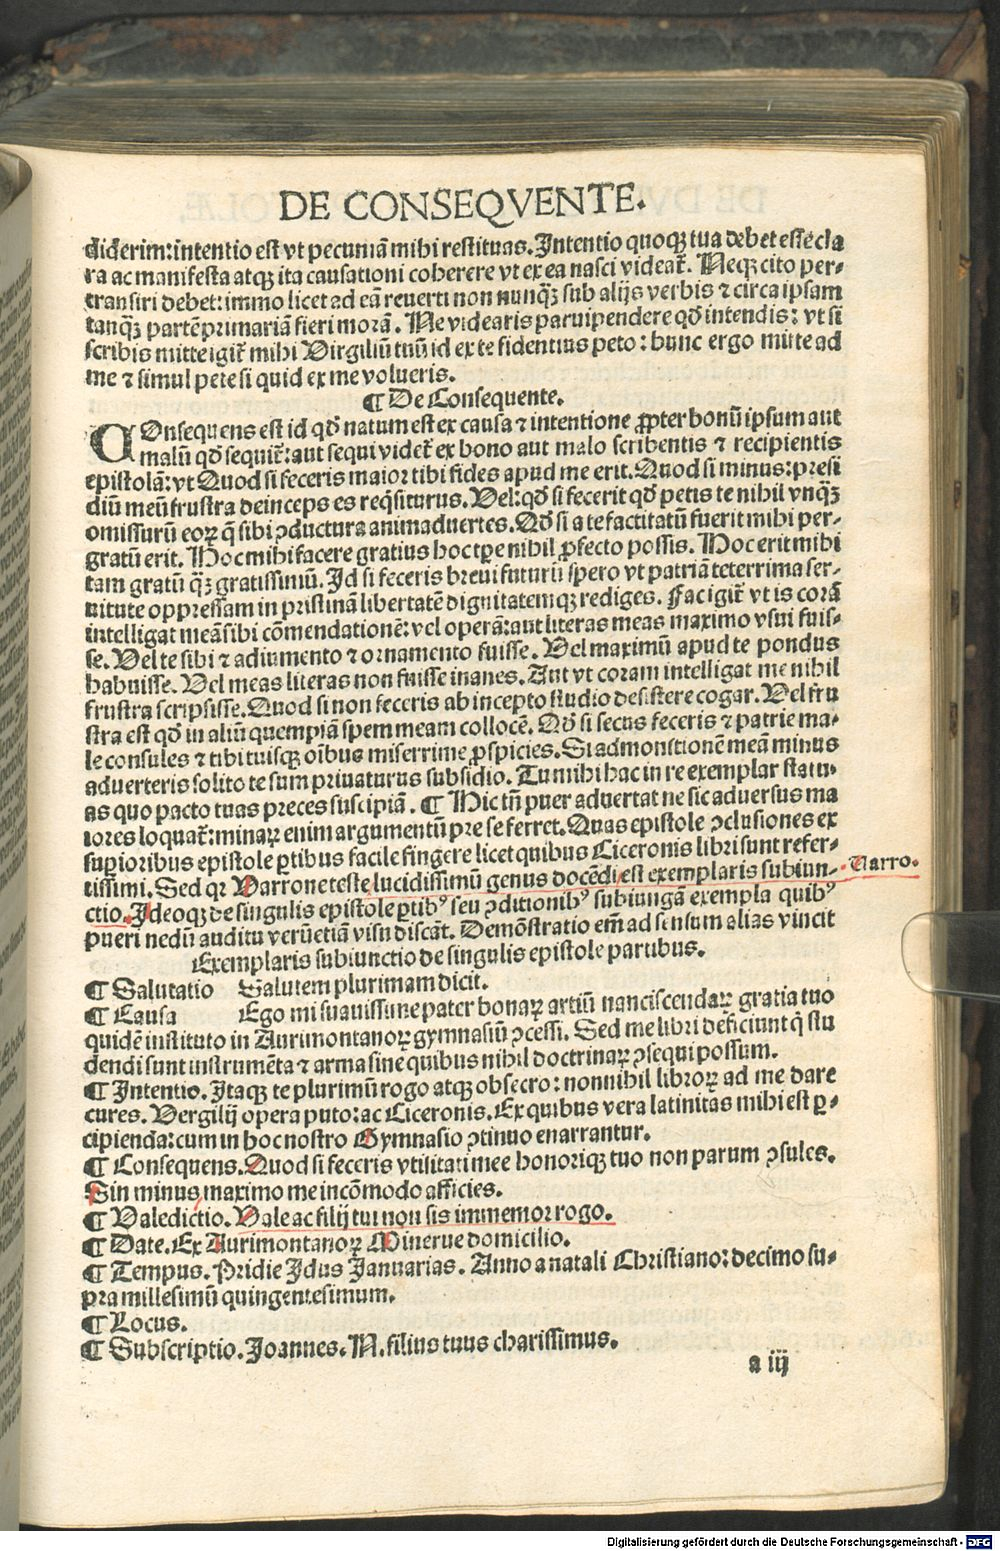 DE CONSEQVENTE.
diderim: intentio est vt pecuniā mihi restituas. Intentio quoqꝫ tua debet esse cla
ra ac manifesta atqꝫ ita causationi coherere vt ex ea nasci videat᷑. Neqꝫ cito per-
transiri debet: immo licet ad eā reuerti non nunqꝫ̄ sub alijs verbis ⁊ circa ipsam
tanqꝫ̄ partē primariā fieri morā. Ne videaris paruipendere qd̄ intendis: vt si
scribis mitte igit᷑ mihi Virgiliū tuū id ex te fidentius peto: hunc ergo mitte ad
me ⁊ simul pete si quid ex me volueris.
¶ De Consequente.
COnsequens est id qd̄ natum est ex causa ⁊ intentione ꝓpter bonū ipsum aut
malū qd̄ sequit᷑: aut sequi videt᷑ ex bono aut malo scribentis ⁊ recipientis
epistolā: vt Quod si feceris maior tibi fides apud me erit. Quod si minus: presi
diū meū frustra deinceps es reqͥsiturus. Vel: qd̄ si fecerit qd̄ petis te nihil vnqꝫ̄
omissurū eoꝝ q̄ sibi ɔductura animaduertes. Qd̄ si a te factitatū fuerit mihi per-
gratū erit. Hoc mihi facere gratius hoc tꝑe nihil ꝓfecto possis. Hoc erit mihi
tam gratū qꝫ̄ gratissimū. Id si feceris breui futurū spero vt patriā teterrima ser-
uitute oppressam in pristinā libertatē dignitatemqꝫ rediges. Fac igit᷑ vt is corā
intelligat meā sibi cōmendationē: vel operā: aut literas meas maximo vsui fuis-
se. Vel te sibi ⁊ adiumento ⁊ ornamento fuisse. Vel maximū apud te pondus
habuisse. Vel meas literas non fuisse inanes. Aut vt coram intelligat me nihil
frustra scripsisse. Quod si non feceris ab incepto studio desistere cogar. Vel fru
stra est qd̄ in aliū quempiā spem meam collocē. Qd̄ si secus feceris ⁊ patrie ma-
le consules ⁊ tibi tuisqꝫ oībus miserrime ꝓspicies. Si admonitionē meā minus
aduerteris solito te sum priuaturus subsidio. Tu mihi hac in re exemplar statu-
as quo pacto tuas preces suscipiā. ¶ Hic tn̄ puer aduertat ne sic aduersus ma
iores loquat᷑: minaꝝ enim argumentū pre se ferret. Quas epistole ɔclusiones ex
suꝑioribus epistole ꝑtibus facile fingere licet quibus Ciceronis libri sunt refer-
tissimi. Sed qꝛ Varrone teste lucidissimū genus docēdi est exemplaris subiun-
Varro.
ctio. Ideoqꝫ de singulis epistole ꝑtibꝰ seu ɔditionibꝰ subiungā exempla quibꝰ
pueri nedū auditu verūetiā visu discāt. Demōstratio em̄ ad sensum alias vincit
Exemplaris subiunctio de singulis epistole partibus.
¶ Salutatio Salutem plurimam dicit.
¶ Causa Ego mi suauissime pater bonaꝝ artiū nanciscendaꝝ gratia tuo
quidē instituto in Aurimontanoꝝ gymnasiū ɔcessi. Sed me libri deficiunt q̄ stu
dendi sunt instrumēta ⁊ arma sine quibus nihil doctrinaꝝ ɔsequi possum.
¶ Intentio. Itaqꝫ te plurimū rogo atqꝫ obsecro: nonnihil libroꝝ ad me dare
cures. Vergilij opera puto: ac Ciceronis. Ex quibus vera latinitas mihi est ꝑ-
cipienda: cum in hoc nostro Gymnasio ɔtinuo enarrantur.
¶ Consequens. Quod si feceris vtilitati mee honoriqꝫ tuo non parum ɔsules.
Sin minus maximo me incōmodo afficies.
¶ Valedictio. Vale ac filij tui non sis immemor rogo.
¶ Date. Ex Aurimontanoꝝ Minerue domicilio.
¶ Tempus. Pridie Idus Januarias. Anno a natali Christiano: decimo su-
pra millesimū quingentesimum.
¶ Locus.
¶ Subscriptio. Joannes. N. filius tuus charissimus.
a iij
Digitalisierung gefördert durch die Deutsche Forschungsgemeinschaft - DFG